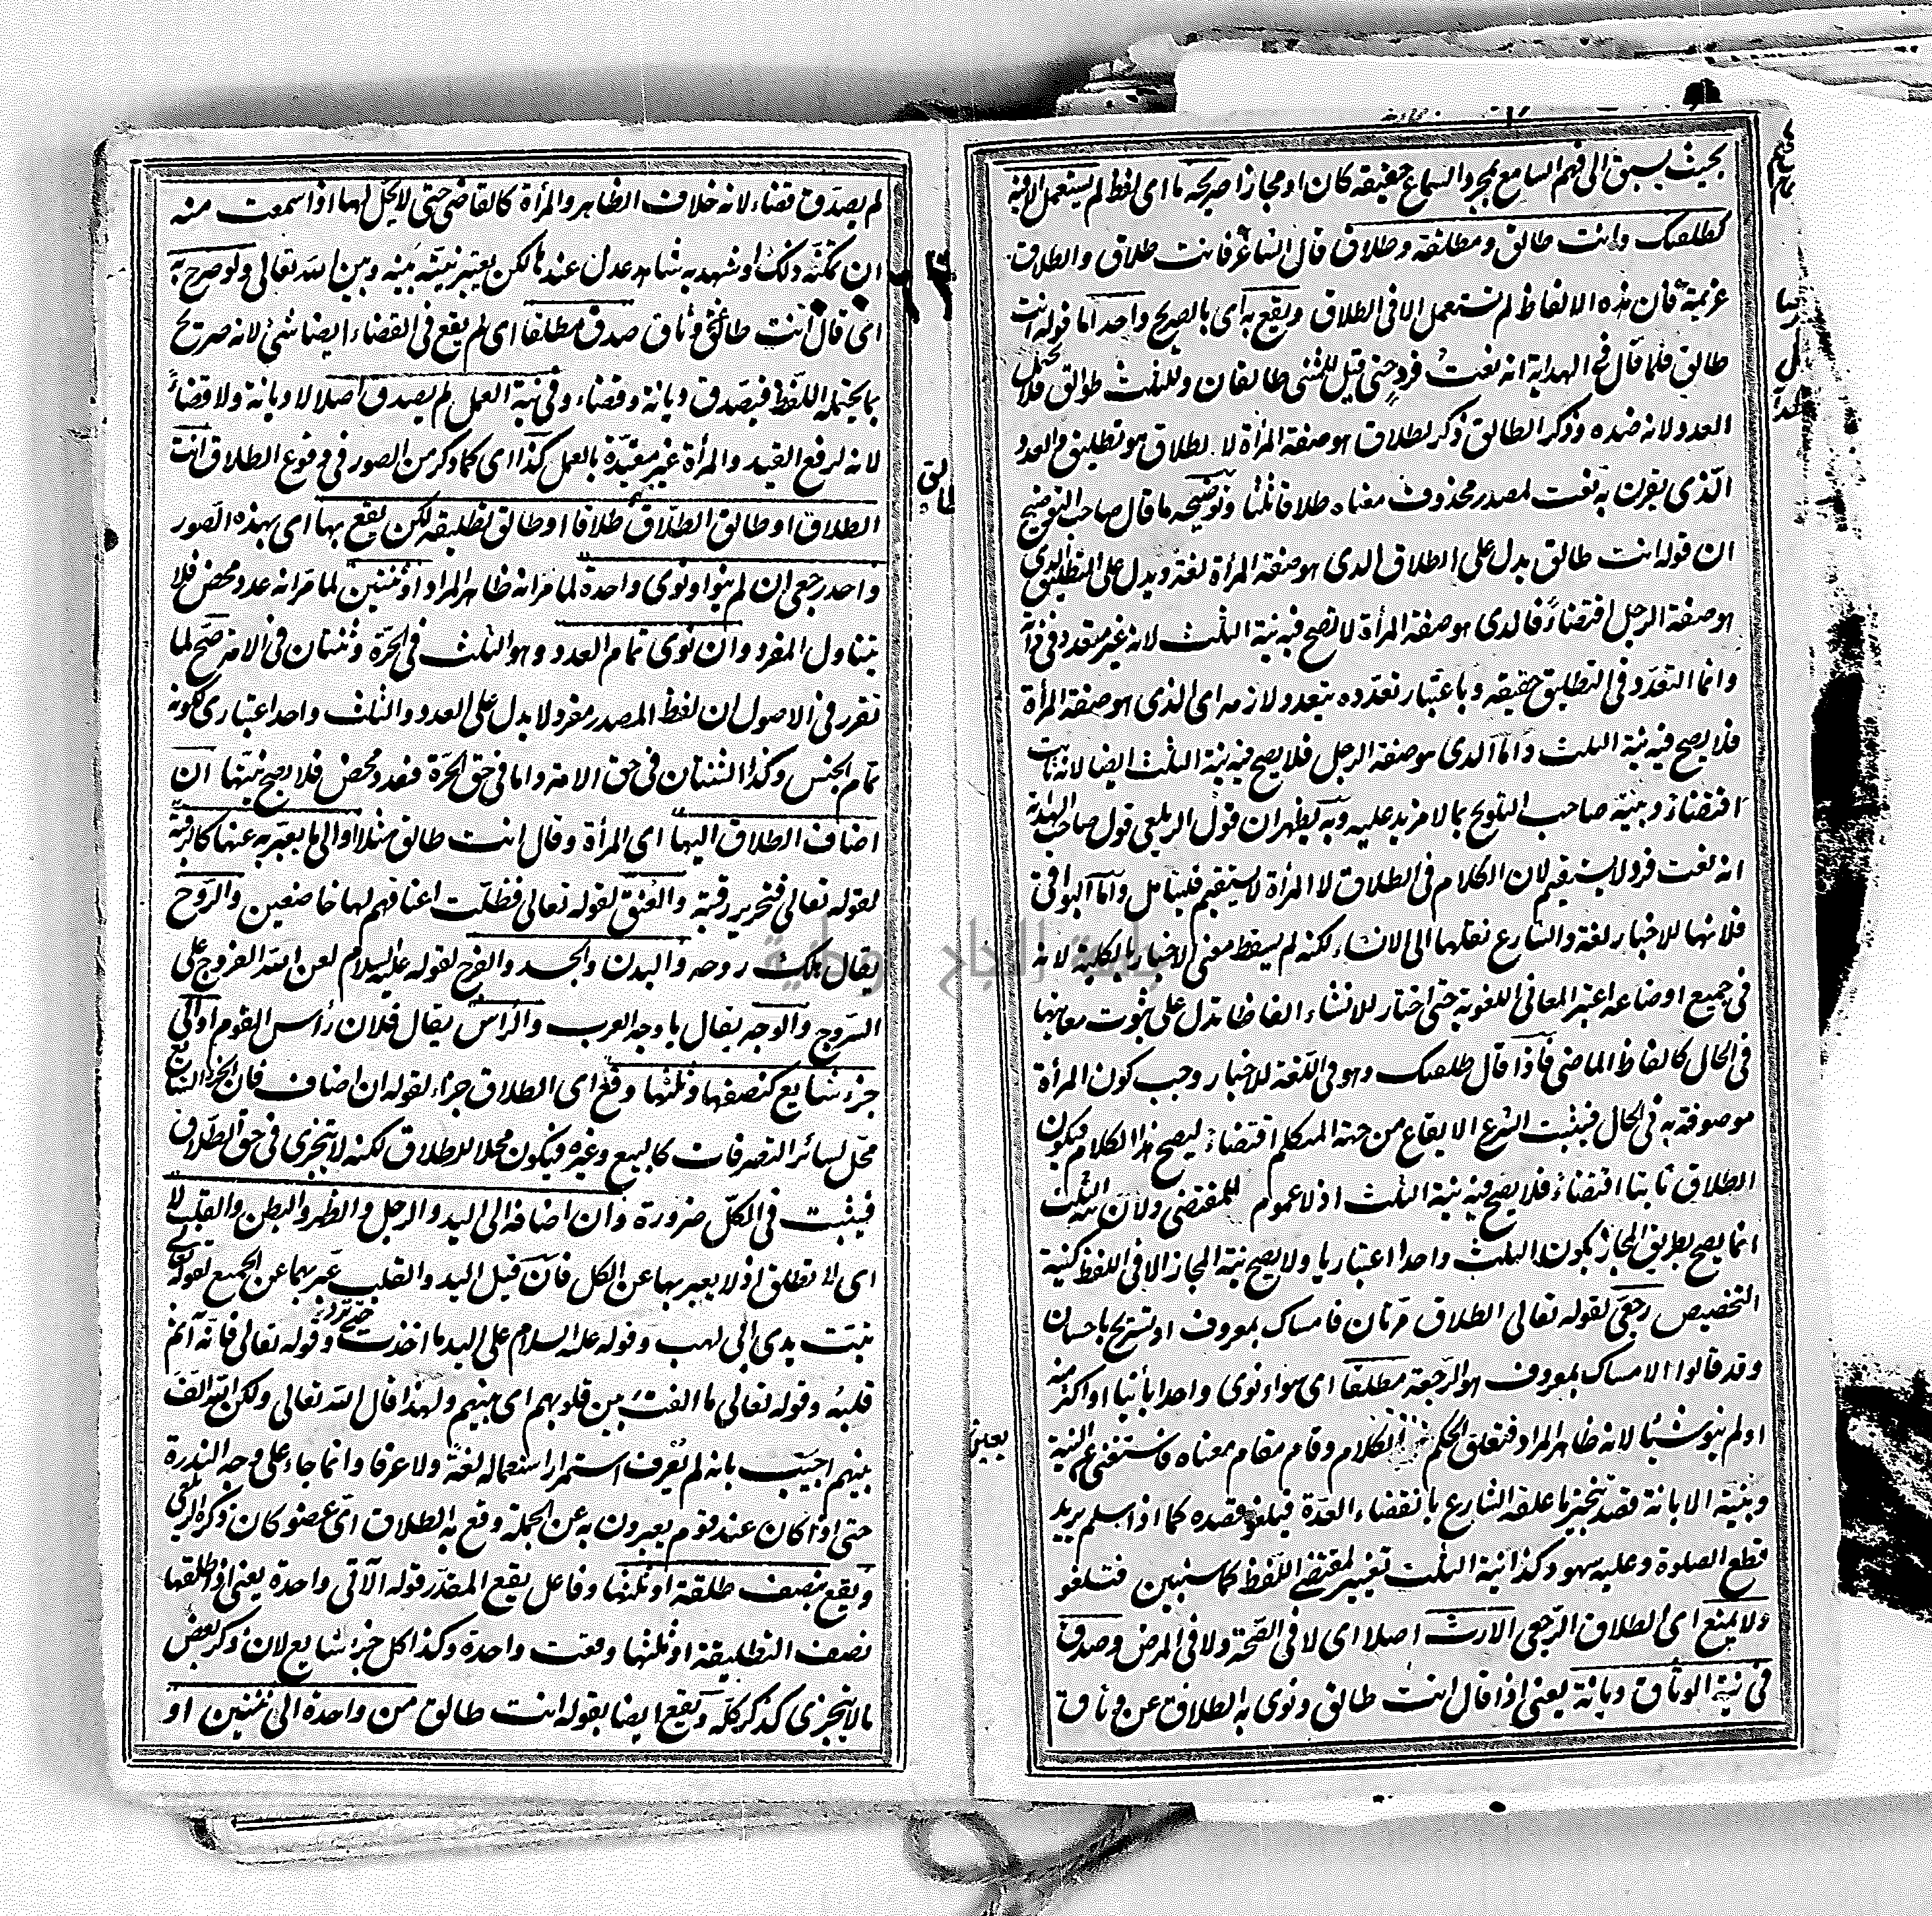 بحيث يسبق الى فهم السامع بمجرد السماع حقيقة كان او مجازا صريحه ما اى لفظ لم يستعمل الا فيه
كطلقتك وانت طالق ومطلقة وطلاق قال الشاعر فانت طلاق والطلاق
عزيمة فان هذه الالفاظ لم تستعمل الا فى الطلاق ويقع به اى بالصريح واحد اما قوله انت
طالق فلما قال فى الهداية انه نعت فرد حتى قيل للمثنى طالقان وللثلث طوالق فلا يحتمل
العدد لانه ضده وذكر الطالق ذكر لطلاق هو صفة المرأة لا لطلاق هو تطليق والعدد
الذى يقرن به نعت لمصدر محذوف معناه طلاقا ثلثا وتوضيحه ما قال صاحب التوضيح
ان قوله انت طالق يدل على الطلاق الذى هو صفة المرأة لغة ويدل على التطليق الذى
هو صفة الرجل اقتضاءً فالذى هو صفة المرأة لا تصح فيه نية الثلث لانه غير متعدد فى ذاته
وانما التعدد فى التطليق حقيقة وباعتبار تعدده يتعدد لازمه اى الذى هو صفة المرأة
فلا يصح فيه نية الثلث واما الذى هو صفة الرجل فلا يصح فيه نية الثلث ايضا لانه ثابت
اقتضاء وبينه صاحب التلويح بما لا مزيد عليه وبه يظهر ان قول الزيلعى قول صاحب الهداية
انه نعت فرد لا يستقيم لان الكلام فى الطلاق لا المرأة لا يستقيم فليتأمل واما البواقى
فلانها للاخبار لغة والشارع نقلها الى الانشاء لكنه لم يسقط معنى الاخبار بالكلية لانه
فى جميع اوضاعه اعتبر المعانى اللغوية حتى اختار للانشاء الفاظا تدل على ثبوت معانيها
فى الحال كالفاظ الماضى فاذا قال طلقتك وهو فى اللغة للاخبار وجب كون المرأة
موصوفة به فى الحال فيثبت الشرع الايقاع من جهة المتكلم اقتضاء ليصح هذا الكلام فيكون
الطلاق ثابتا اقتضاء فلا يصح فيه نية الثلث اذ لا عموم للمقتضى ولان نية الثلث
انما يصح بطريق المجاز بكون الثلث واحدا اعتباريا ولا يصح نية المجاز الا فى اللفظ كنية
التخصيص رجعى لقوله تعالى الطلاق مرتان فامساك بمعروف او تسريح باحسان
وقد قالوا الامساك بمعروف هو الرجعة مطلقا اى سواء نوى واحدا بائنا او اكثر منه
او لم ينو شيئا لانه ظاهر المراد فتعلق الحكم الكلام وقام مقام معناه فاستغنى عن النية
وبنية الابانة قصد تنجيز ما علقه الشارع بانقضاء العدة فيلغو قصده كما اذا سلم يريد
قطع الصلوة وعليه سهو وكذا نية الثلث تغيير لمقتضى اللفظ كما سنبين فتلغو
ولا يمنع اى الطلاق الرجعى الارث اصلا اى لا فى الصحة ولا فى المرض وصدق
فى نية الوثاق ديانة يعنى اذا قال انت طالق ونوى به الطلاق عن وثاق
لم يصدق قضاء لانه خلاف الظاهر والمرأة كالقاضى حتى لا يحل لها اذا سمعت منه
ان تمكنه ذلك او شهد به شاهد عدل عندها لكن يعتبر نيته بينه وبين الله تعالى ولو صرح به
اى قال انت طالق عن وثاق صدق مطلقا اى لم يقع فى القضاء ايضا شئ لانه صريح
بما يحتمله اللفظ فيصدق ديانة وقضاء وفى نية العمل لم يصدق اصلا لا ديانة ولا قضاءً
لانه لرفع القيد والمرأة غير مقيدة بالعمل كذا اى كما ذكر من الصور فى وقوع الطلاق انت
الطلاق او طالق الطلاق او طالق طلاقا او طالق تطليقة لكن يقع بها اى بهذه الصور
واحد رجعى ان لم ينو او نوى واحدة لما مر انه ظاهر المراد او ثنتين لما مر انه عدد محض فلا
يتناول المفرد وان نوى تمام العدد وهو الثلث فى الحرة وثنتان فى الامة صح لما
تقرر فى الاصول ان لفظ المصدر مفرد لا يدل على العدد والثلث واحد اعتبارى لكونه
تمام الجنس وكذا الثنتان فى حق الامة واما فى حق الحرة فعدد محض فلا يصح نيتها ان
اضاف الطلاق اليها اى المرأة وقال انت طالق مثلا او الى ما يعبر به عنها كالرقبة
لقوله تعالى فتحرير رقبة والعنق لقوله تعالى فظلت اعناقهم لها خاضعين والروح
يقال هلك روحه والبدن والجسد والفرج لقوله عليه السلام لعن الله الفروج على
السروج والوجه يقال يا وجه العرب والرأس يقال فلان رأس القوم او الى
جزء شايع كنصفها وثلثها وقع اى الطلاق جزاء لقوله ان اضاف فان الجزء الشايع
محل لسائر التصرفات كالبيع وغيره فيكون محلا للطلاق لكنه لا يتجزى فى حق الطلاق
فيثبت فى الكل ضرورة وان اضافه الى اليد والرجل والظهر والبطن والقلب لا
اى لا تطلق اذ لا يعبر بها عن الكل فان قيل اليد والقلب عبر بهما عن الجميع لقوله تعالى
تبت يدى ابى لهب وقوله عليه السلام على اليد ما اخذت حتى ترد وقوله تعالى فانه آثم
قلبه وقوله تعالى ما الفت بين قلوبهم اى بينهم ولهذا قال الله تعالى ولكن الله الف
بينهم اجيب بانه لم يعرف استمرار استعماله لغة ولا عرفا وانما جاء على وجه الندرة
حتى اذا كان عند قوم يعبرون به عن الجملة وقع به الطلاق اى عضو كان ذكره الزيلعى
ويقع بنصف طلقة او ثلثها وفاعل يقع المقدر قوله الآتى واحدة يعنى اذا طلقها
نصف التطليقة او ثلثها وقعت واحدة وكذا كل جزء شايع لان ذكر بعض
ما لا يتجزى كذكر كله ويقع ايضا بقوله انت طالق من واحدة الى ثنتين او